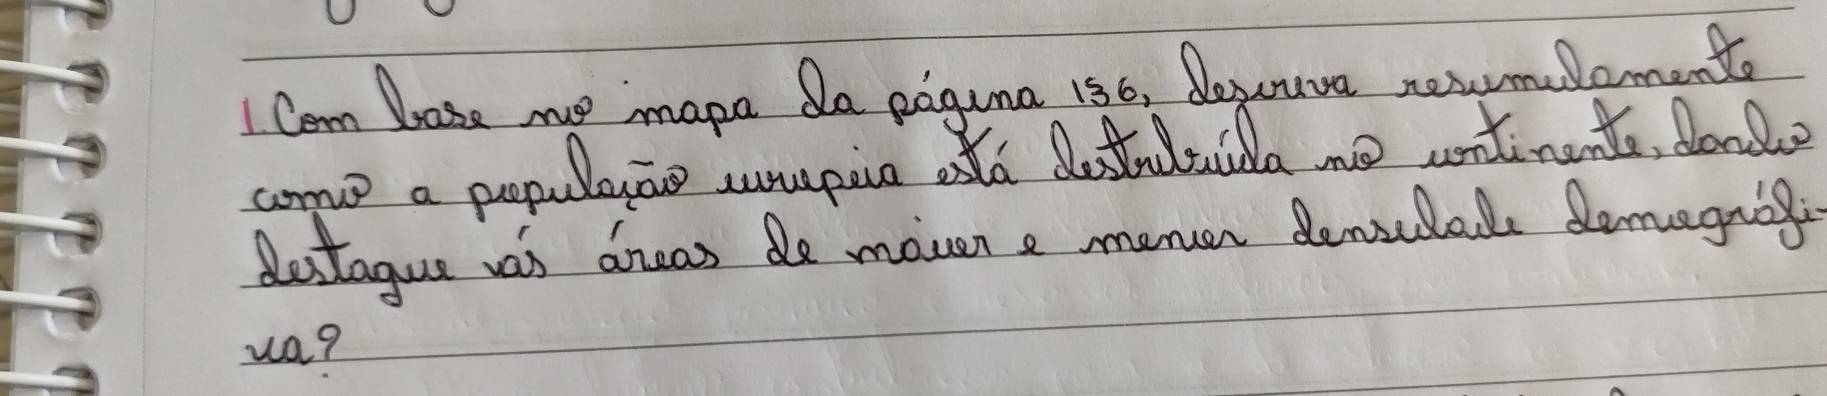 1. Com base no mapa da página 136, descreva resumidamente
como a população europeia está distribuída no continente, dando
destaque às áreas de maior e menor densidade demográfi-
ca?